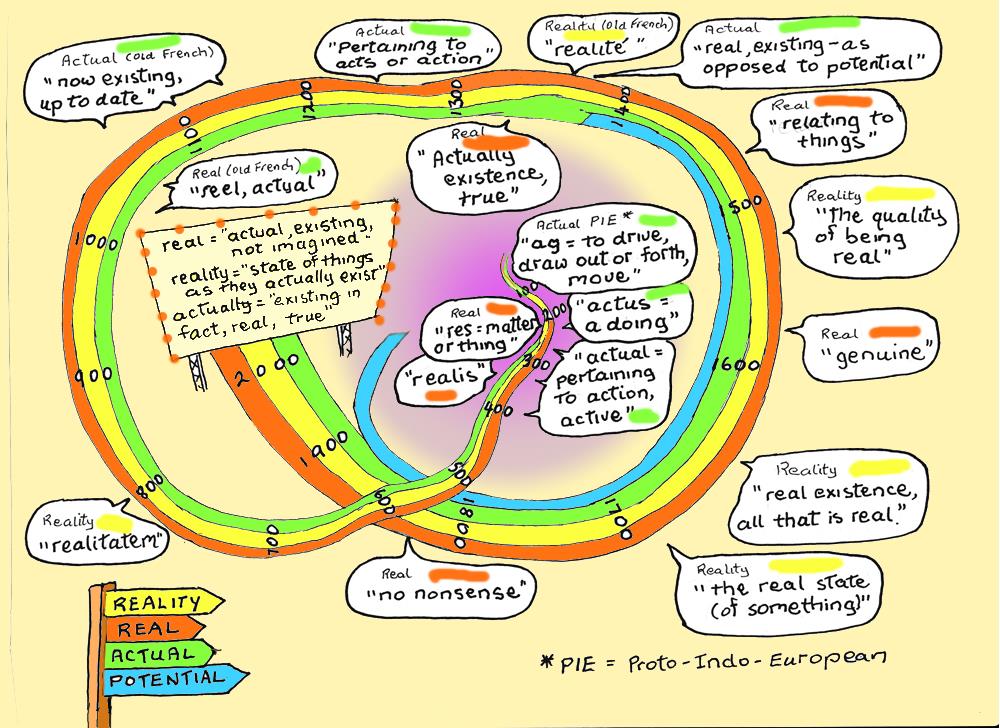 Actual (Old French)
"now existing,
up to date"
Actual
"Pertaining to
acts or action"
Reality (Old French)
"realité"
Actual
"real, existing - as
opposed to potential"
Real
"relating to
things"
Reality
"the quality
of being
real"
Real
"genuine"
Reality
"real existence,
all that is real."
Reality
"the real state
(of something)"
Real
"no nonsense"
Reality
"realitatem"
Real (Old French)
"reel, actual"
Real
"Actually
existence,
true"
real = "actual, existing,
not imagined"
reality = "state of things
as they actually exist"
actually = "existing in
fact, real, true"
Actual PIE *
"ag = to drive,
draw out or forth,
move"
"actus =
a doing"
Real
"res = matter
or thing"
"realis"
"actual =
pertaining
to action,
active"
100
200
300
400
500
600
700
800
900
1000
1100
1200
1300
1400
1500
1600
1700
1800
1900
2000
REALITY
REAL
ACTUAL
POTENTIAL
* PIE = Proto-Indo-European